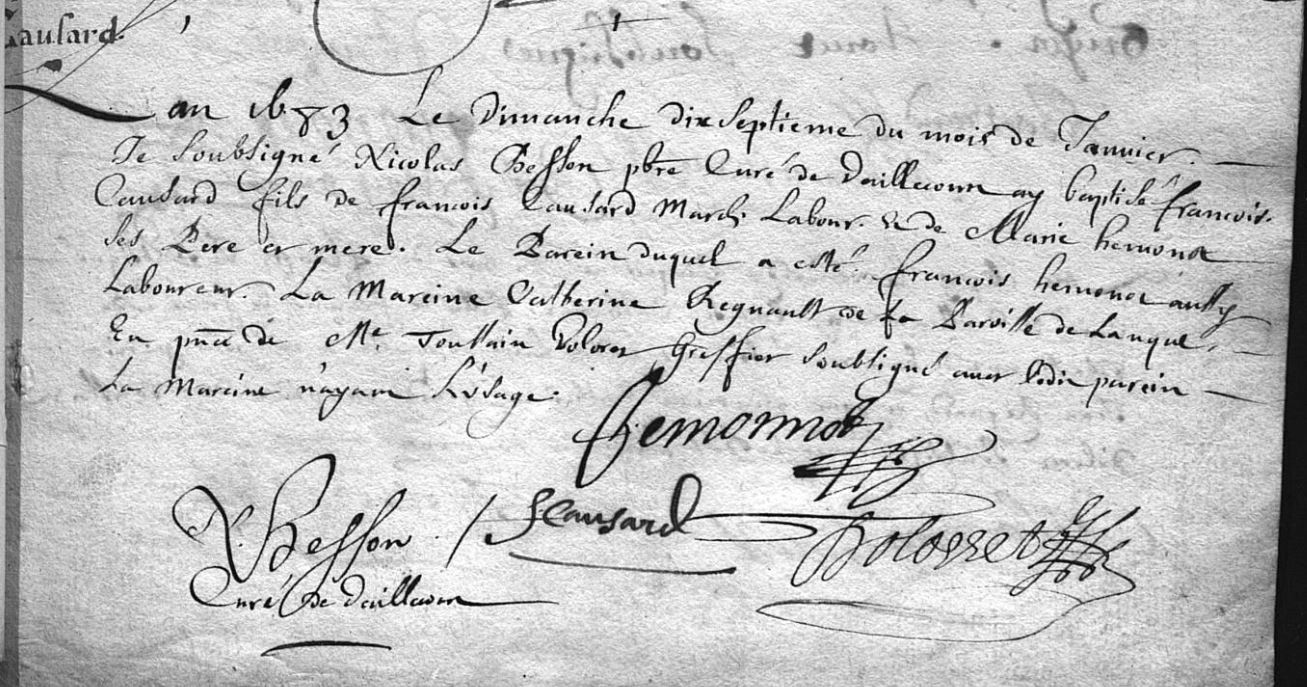 Causard.
Lan 1683 Le Dimanche dix septieme du mois de Janvier.
Je soubsigné Nicolas Besson pbre Curé de Daillecourt ay baptisé francois.
Causard fils de francois Causard March. Labour. & de Marie hemonot
ses Pere et mere. Le Parein duquel a esté francois hemonot aussy
Laboureur. La Mareine Catherine Regnault de La Paroisse de Lanque,
En pnce de Me. Toussain Voloret Greffier soubsigné avec ledit parein
La Mareine n'ayant L'usage.
Hemonnot
N. Besson. F Causard Volorret
Curé De Daillecourt